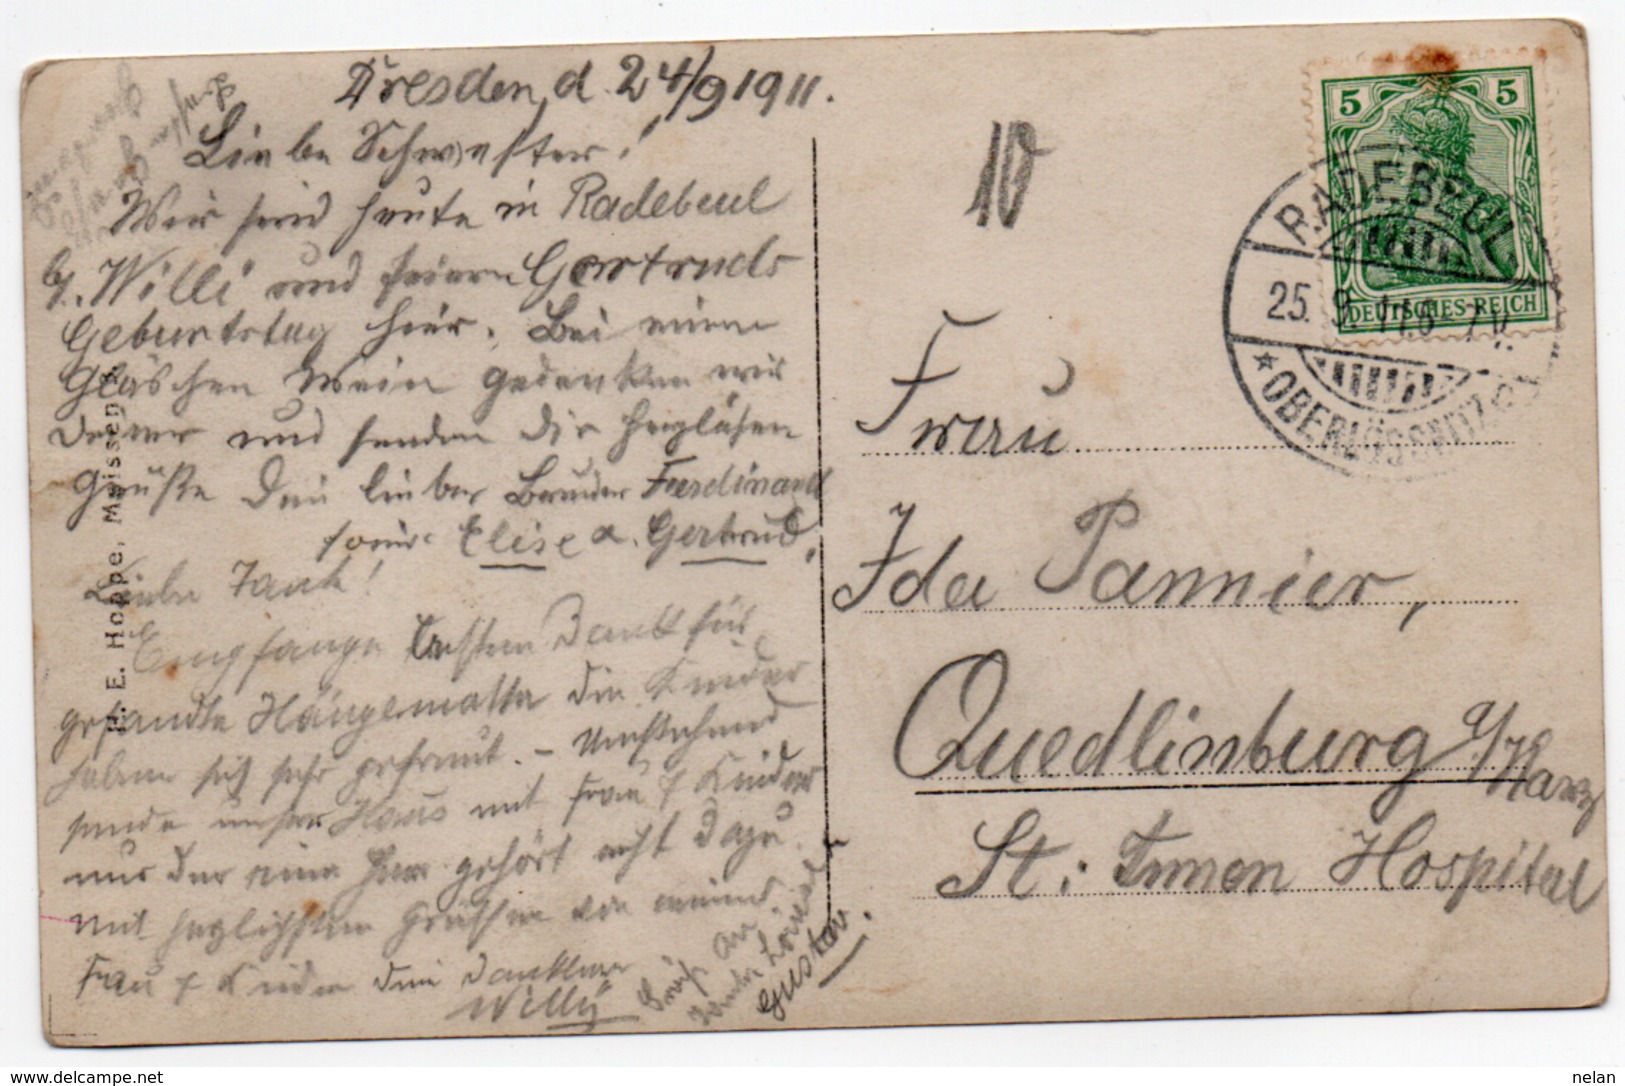 Dresden, d. 24/9 1911.
Liebe Schwester!
Wir sind heute in Radebeul
b. Willi und feiern Gertruds
Geburtstag hier. Bei einem
Gläschen Wein gedenken wir
Deiner und senden dir herzlichen
Grüße Dein lieber Bruder Ferdinand
sowie Elise u. Gertrud.
Liebe Tante!
Empfange besten Dank für
gesandte Hängematte die Kinder
haben sich sehr gefreut. – Umstehend
sende unser Haus mit Frau & Kinder
nur der eine Herr gehört nicht dazu.
Mit herzlichsten Grüßen von meiner
Frau & Kinder dein dankbarer
Willy
Gruß an
Gustav.
H. E. Hoppe, Meissen
10
5 5
DEUTSCHES REICH
RADEBEUL
25. 9. 11. 6-7 N.
* OBERLÖSSNITZ
Frau
Ida Pannier,
Quedlinburg a/Harz
St: Hospital
www.delcampe.net
nelan